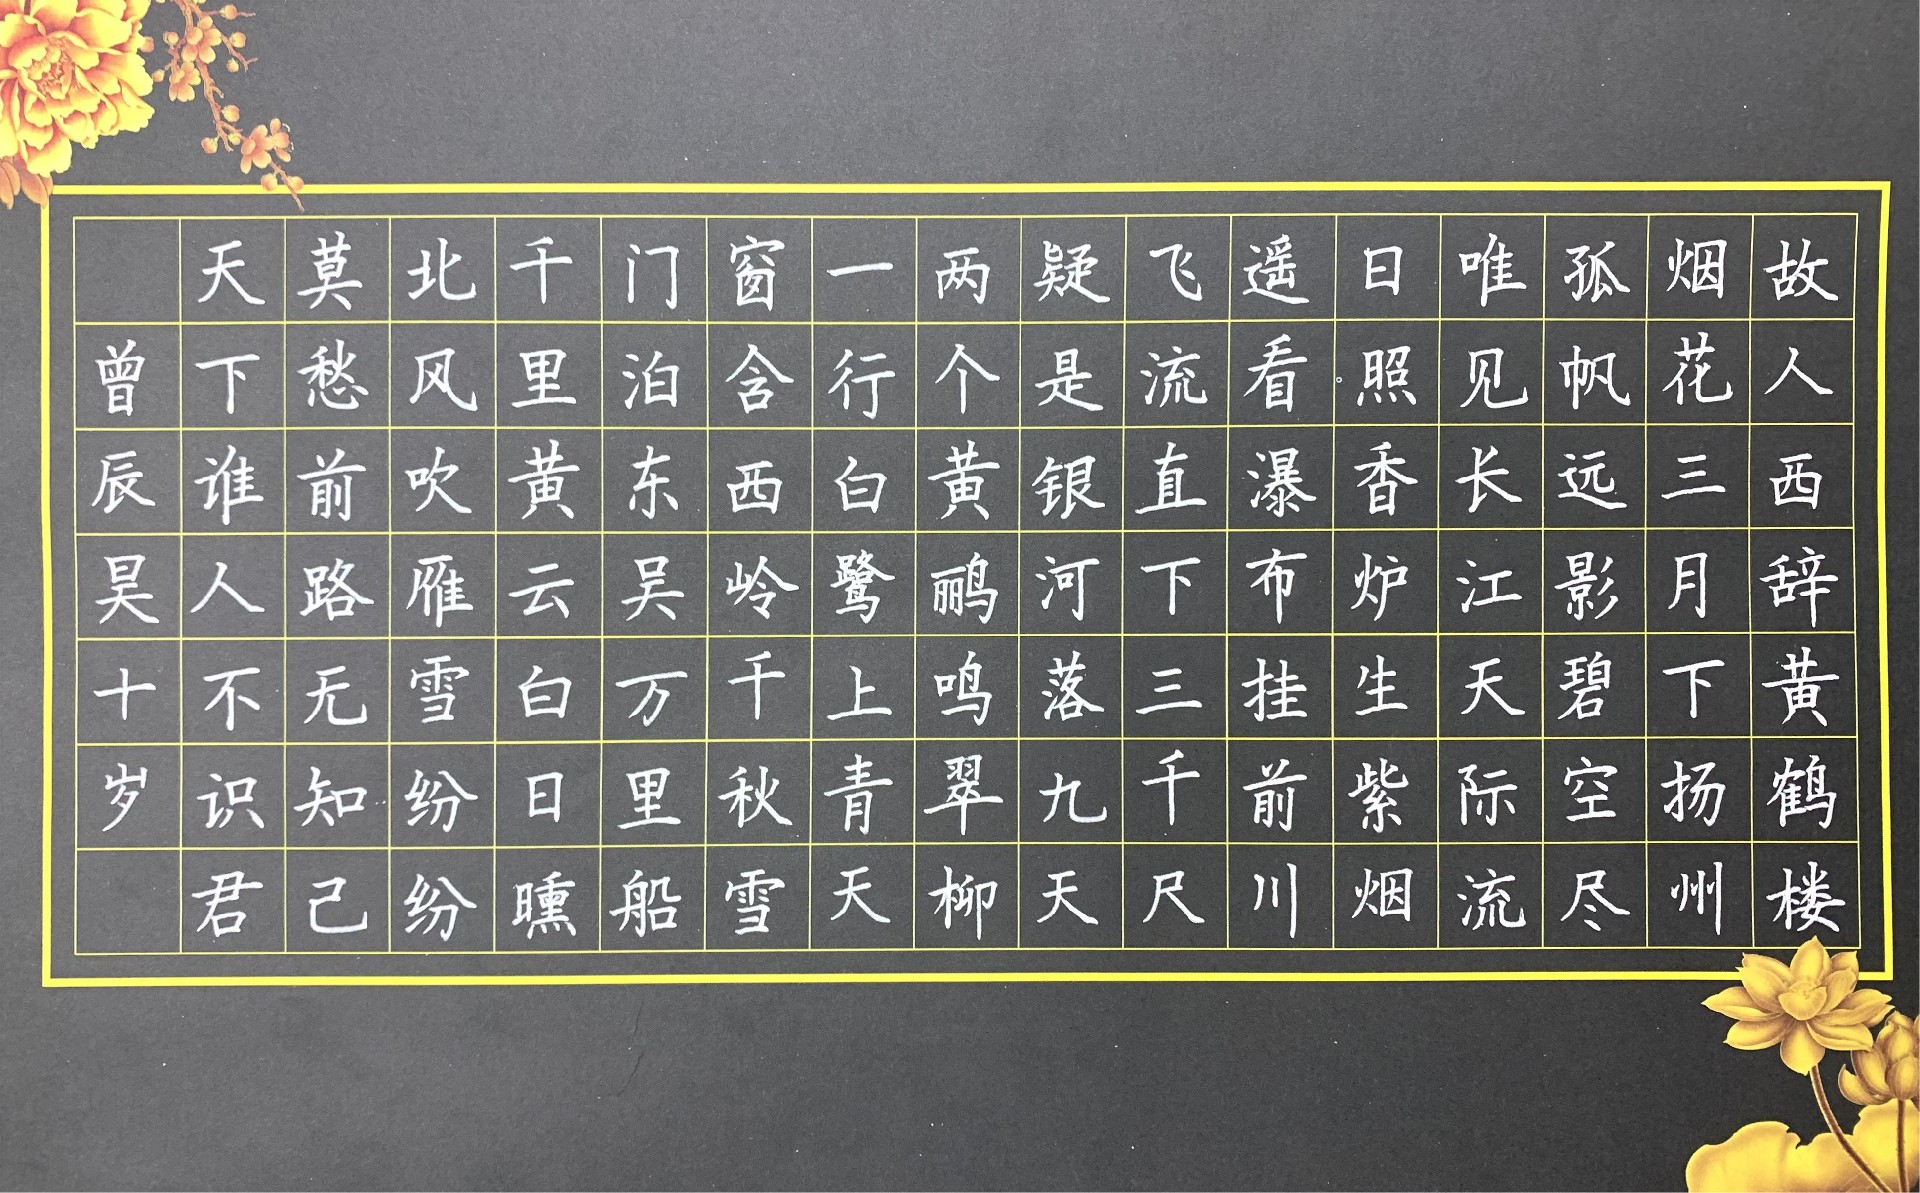 故人西辞黄鹤楼
烟花三月下扬州
孤帆远影碧空尽
唯见长江天际流
日照香炉生紫烟
遥看瀑布挂前川
飞流直下三千尺
疑是银河落九天
两个黄鹂鸣翠柳
一行白鹭上青天
窗含西岭千秋雪
门泊东吴万里船
千里黄云白日曛
北风吹雁雪纷纷
莫愁前路无知己
天下谁人不识君
曾辰昊十岁